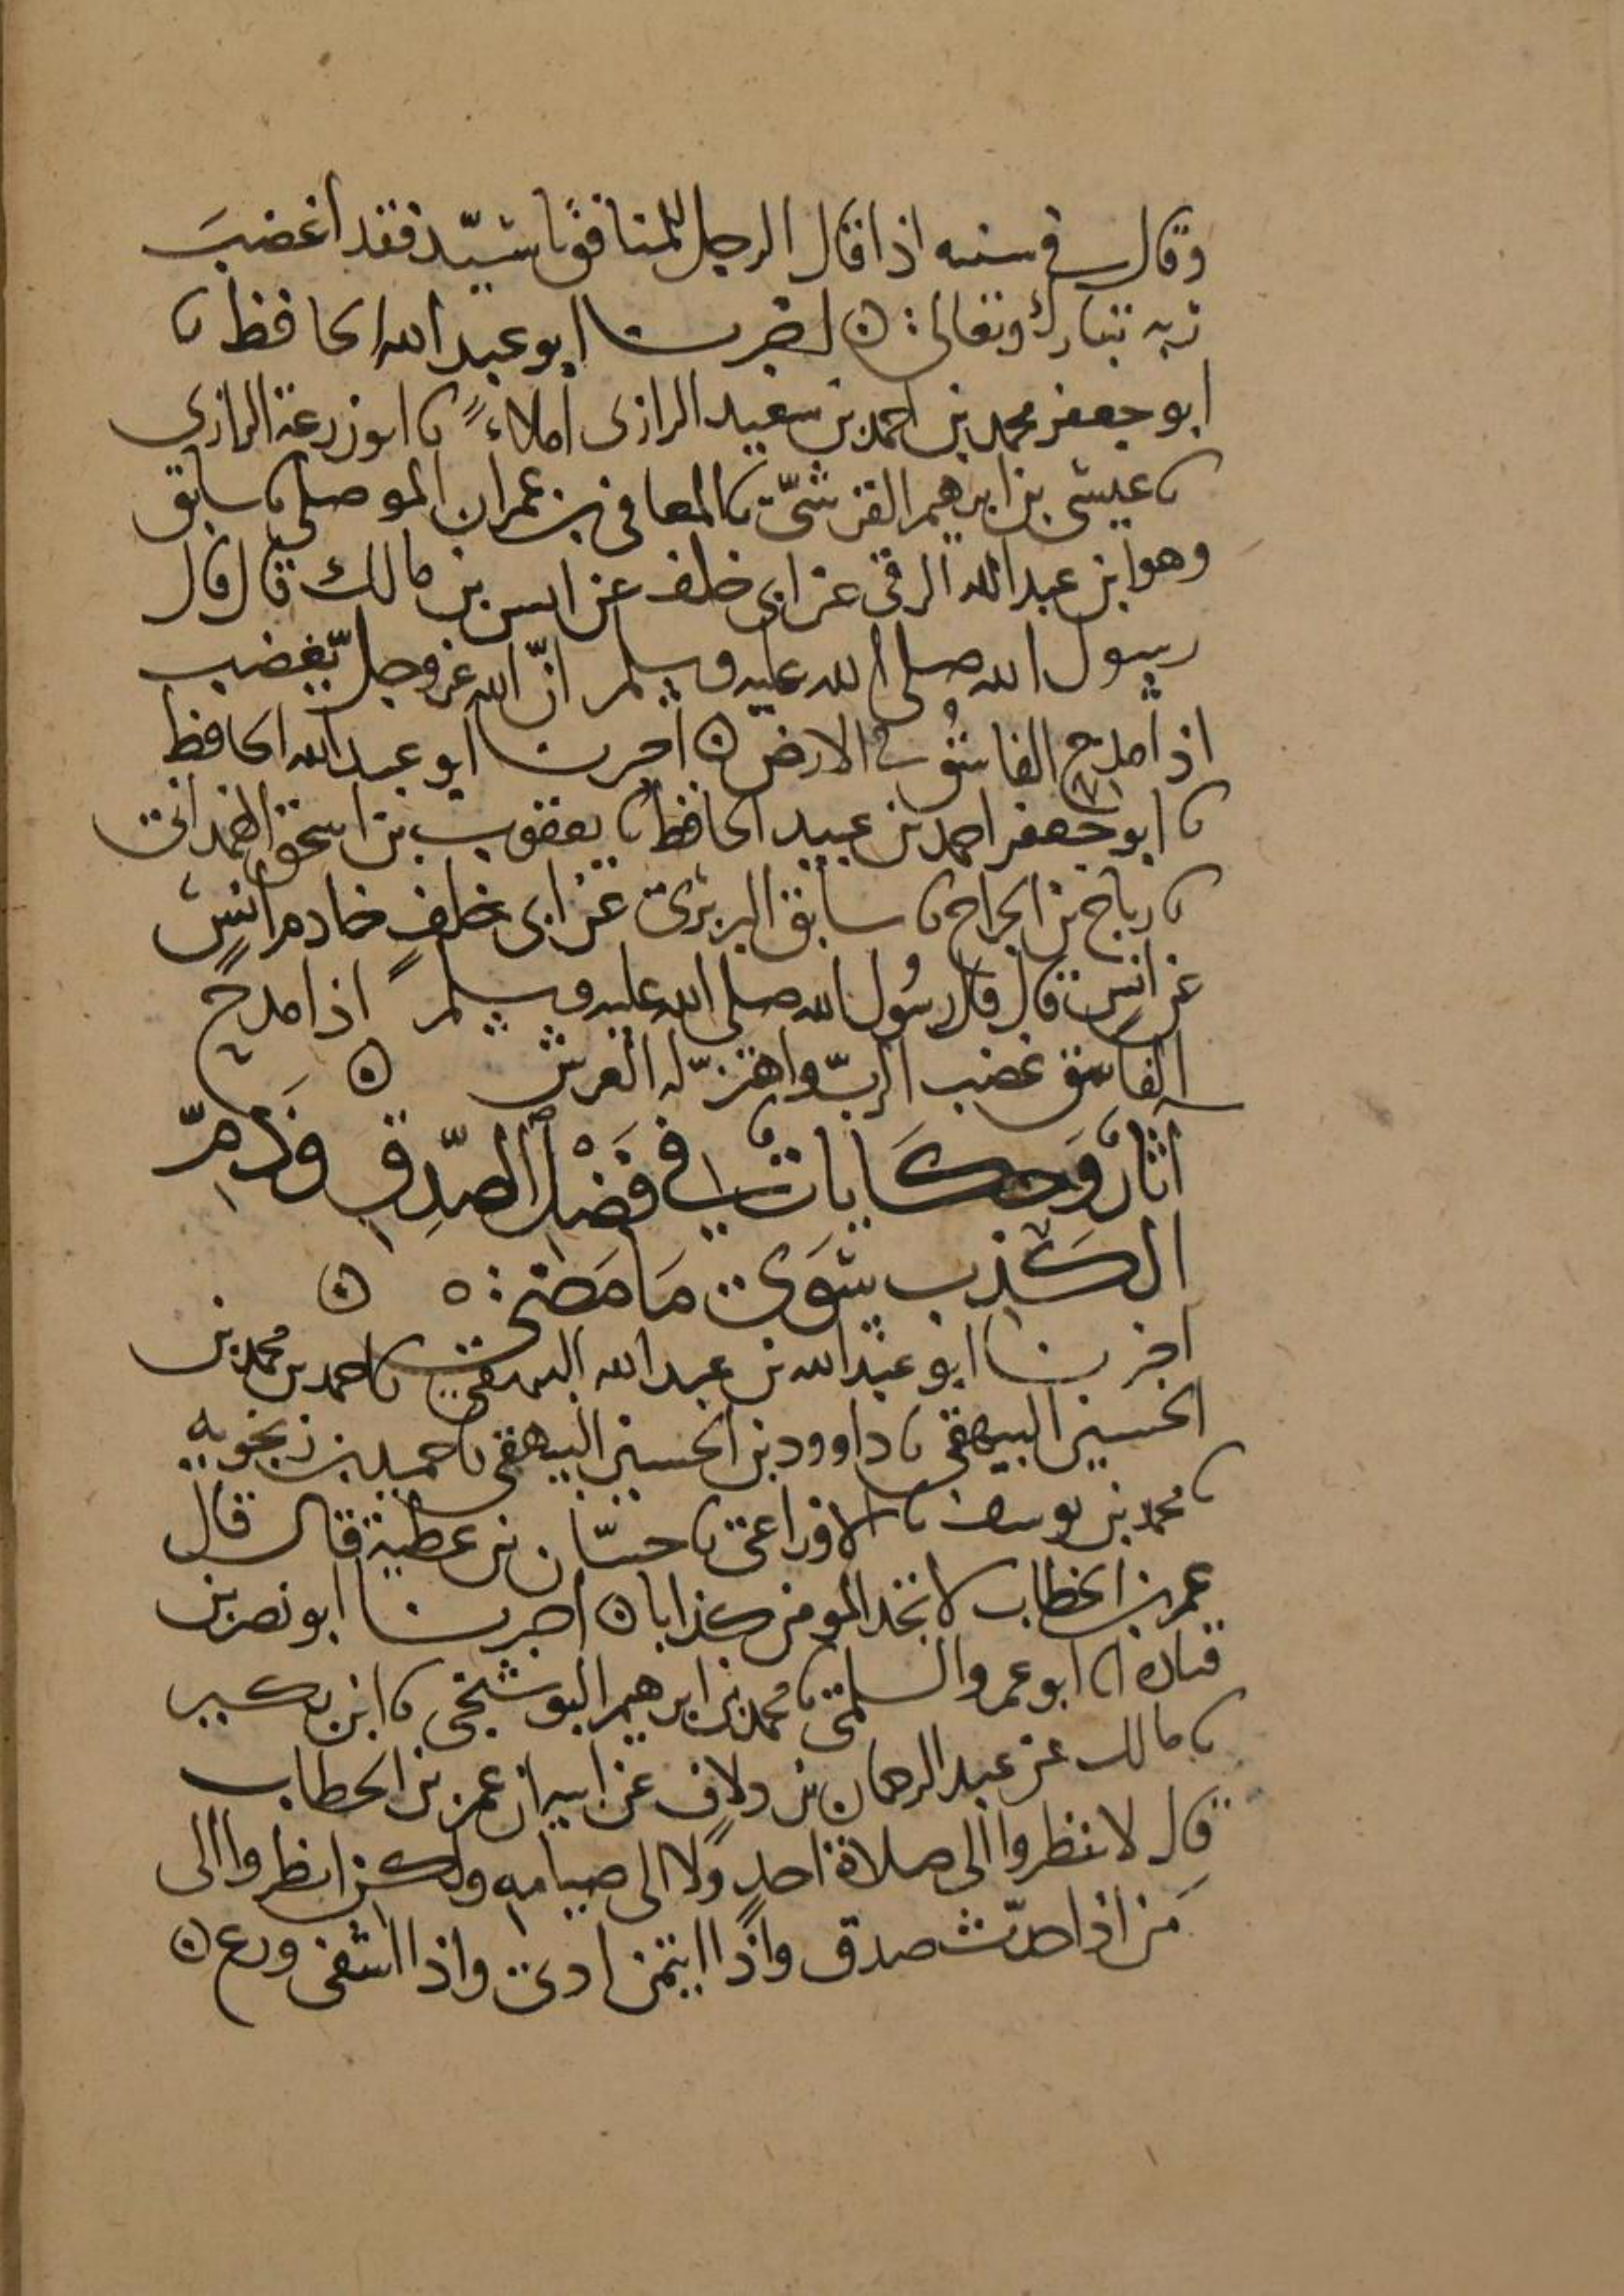 وقال في متنه اذا قال الرجل للمنافق يا سيّد فقد اغضبَ
ربه تبارك وتعالى ۞ اخبرنا ابو عبد الله الحافظ نا
ابو جعفر محمد بن احمد بن سعيد الرازى املاءً نا ابو زرعة الرازي
نا عيسى بن ابرهيم القرشىّ نا المعافى بن عمران الموصلي نا سابق
وهو ابن عبد الله الرقى عن ابى خلف عن انس بن مالك قال قال
رسول الله صلى الله عليه وسلم انّ الله عز وجل يغضب
اذا مدح الفاسقُ في الارض ۞ اخبرنا ابو عبد الله الحافظ
نا ابو جعفر احمد بن عبيد الحافظ نا يعقوب بن اسحق الهمدانى
نا رباح بن الجراح نا سابق البربرى عن ابى خلفٍ خادم انسٍ
عن انسٍ قال قال رسُول الله صلى الله عليه وسلم اذا مدح
الفاسق غضب الربّ واهتزّ له العرش ۞
آثارٌ وَحكَايات في فَضْل الصّدِقِ وَذمِّ
الكَذب سِوَى مَا مَضى ۞
اخبرنا ابو عبد الله بن عبد الله البيهقي نا احمد بن محمد بن
الحسين البيهقى نا داوود بن الحسين البيهقى نا حميد بن زنجويه
نا محمد بن يوسف نا الاوزاعى نا حسّان بن عطية قال قال
عمر بن الخطاب لا تجد المومن كذابا ۞ اخبرنا ابو نصر بن
قتادة انا ابو عمرو السلمىّ نا محمد بن ابرهيم البوشنجى نا ابن بكير
نا مالك عن عبد الرحمان بن دلافٍ عن ابيه ان عمر بن الخطاب
قال لا تنظروا الى صلاة احدٍ ولا الى صيامه ولكن انظروا الى
مَن اذا حدّث صدق واذا ايتمن ادى واذا اشفى ورع ۞